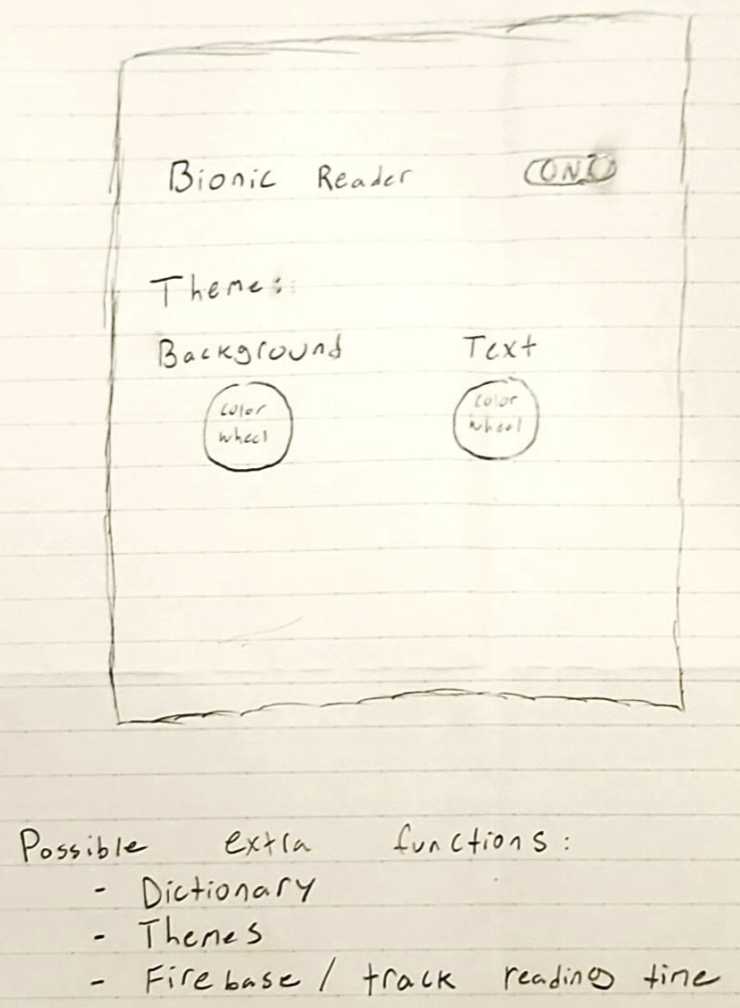 Bionic Reader ON
Theme:
Background Text
color color
wheel wheel
Possible extra functions:
- Dictionary
- Themes
- Firebase / track reading time